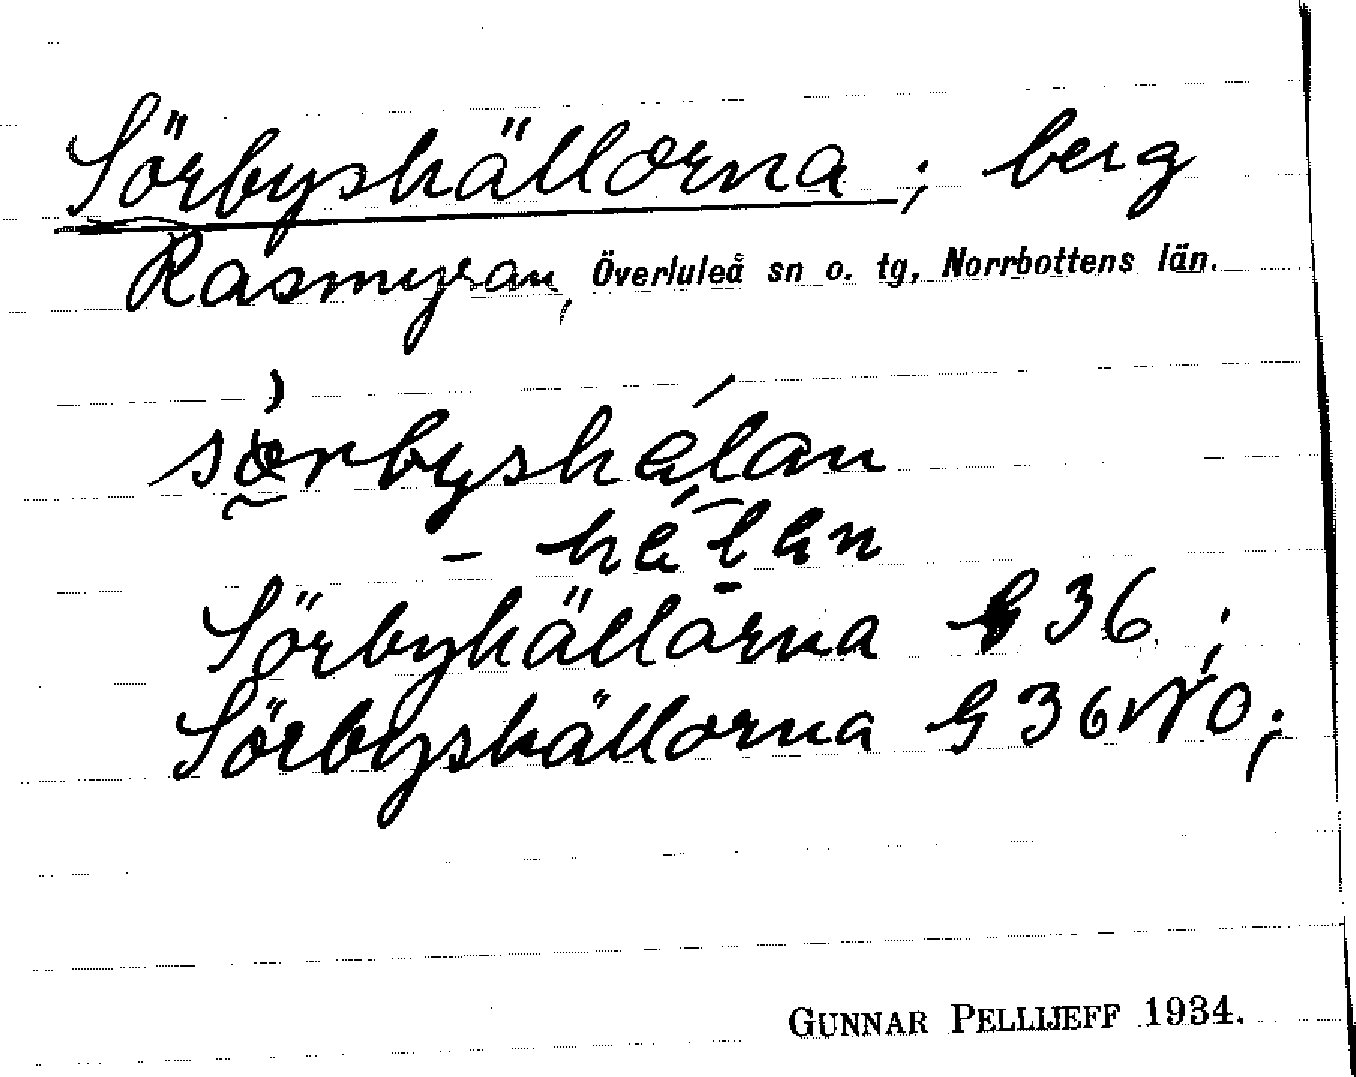 Sörbyshällorna ; berg
Rasmyran, Överluleå sn o. tg, Norrbottens län.
sörbyshálan
- hálan
Sörbyhällorna G 36 ;
Sörbyshällorna G 36 NO ;
GUNNAR PELLIJEFF 1934.